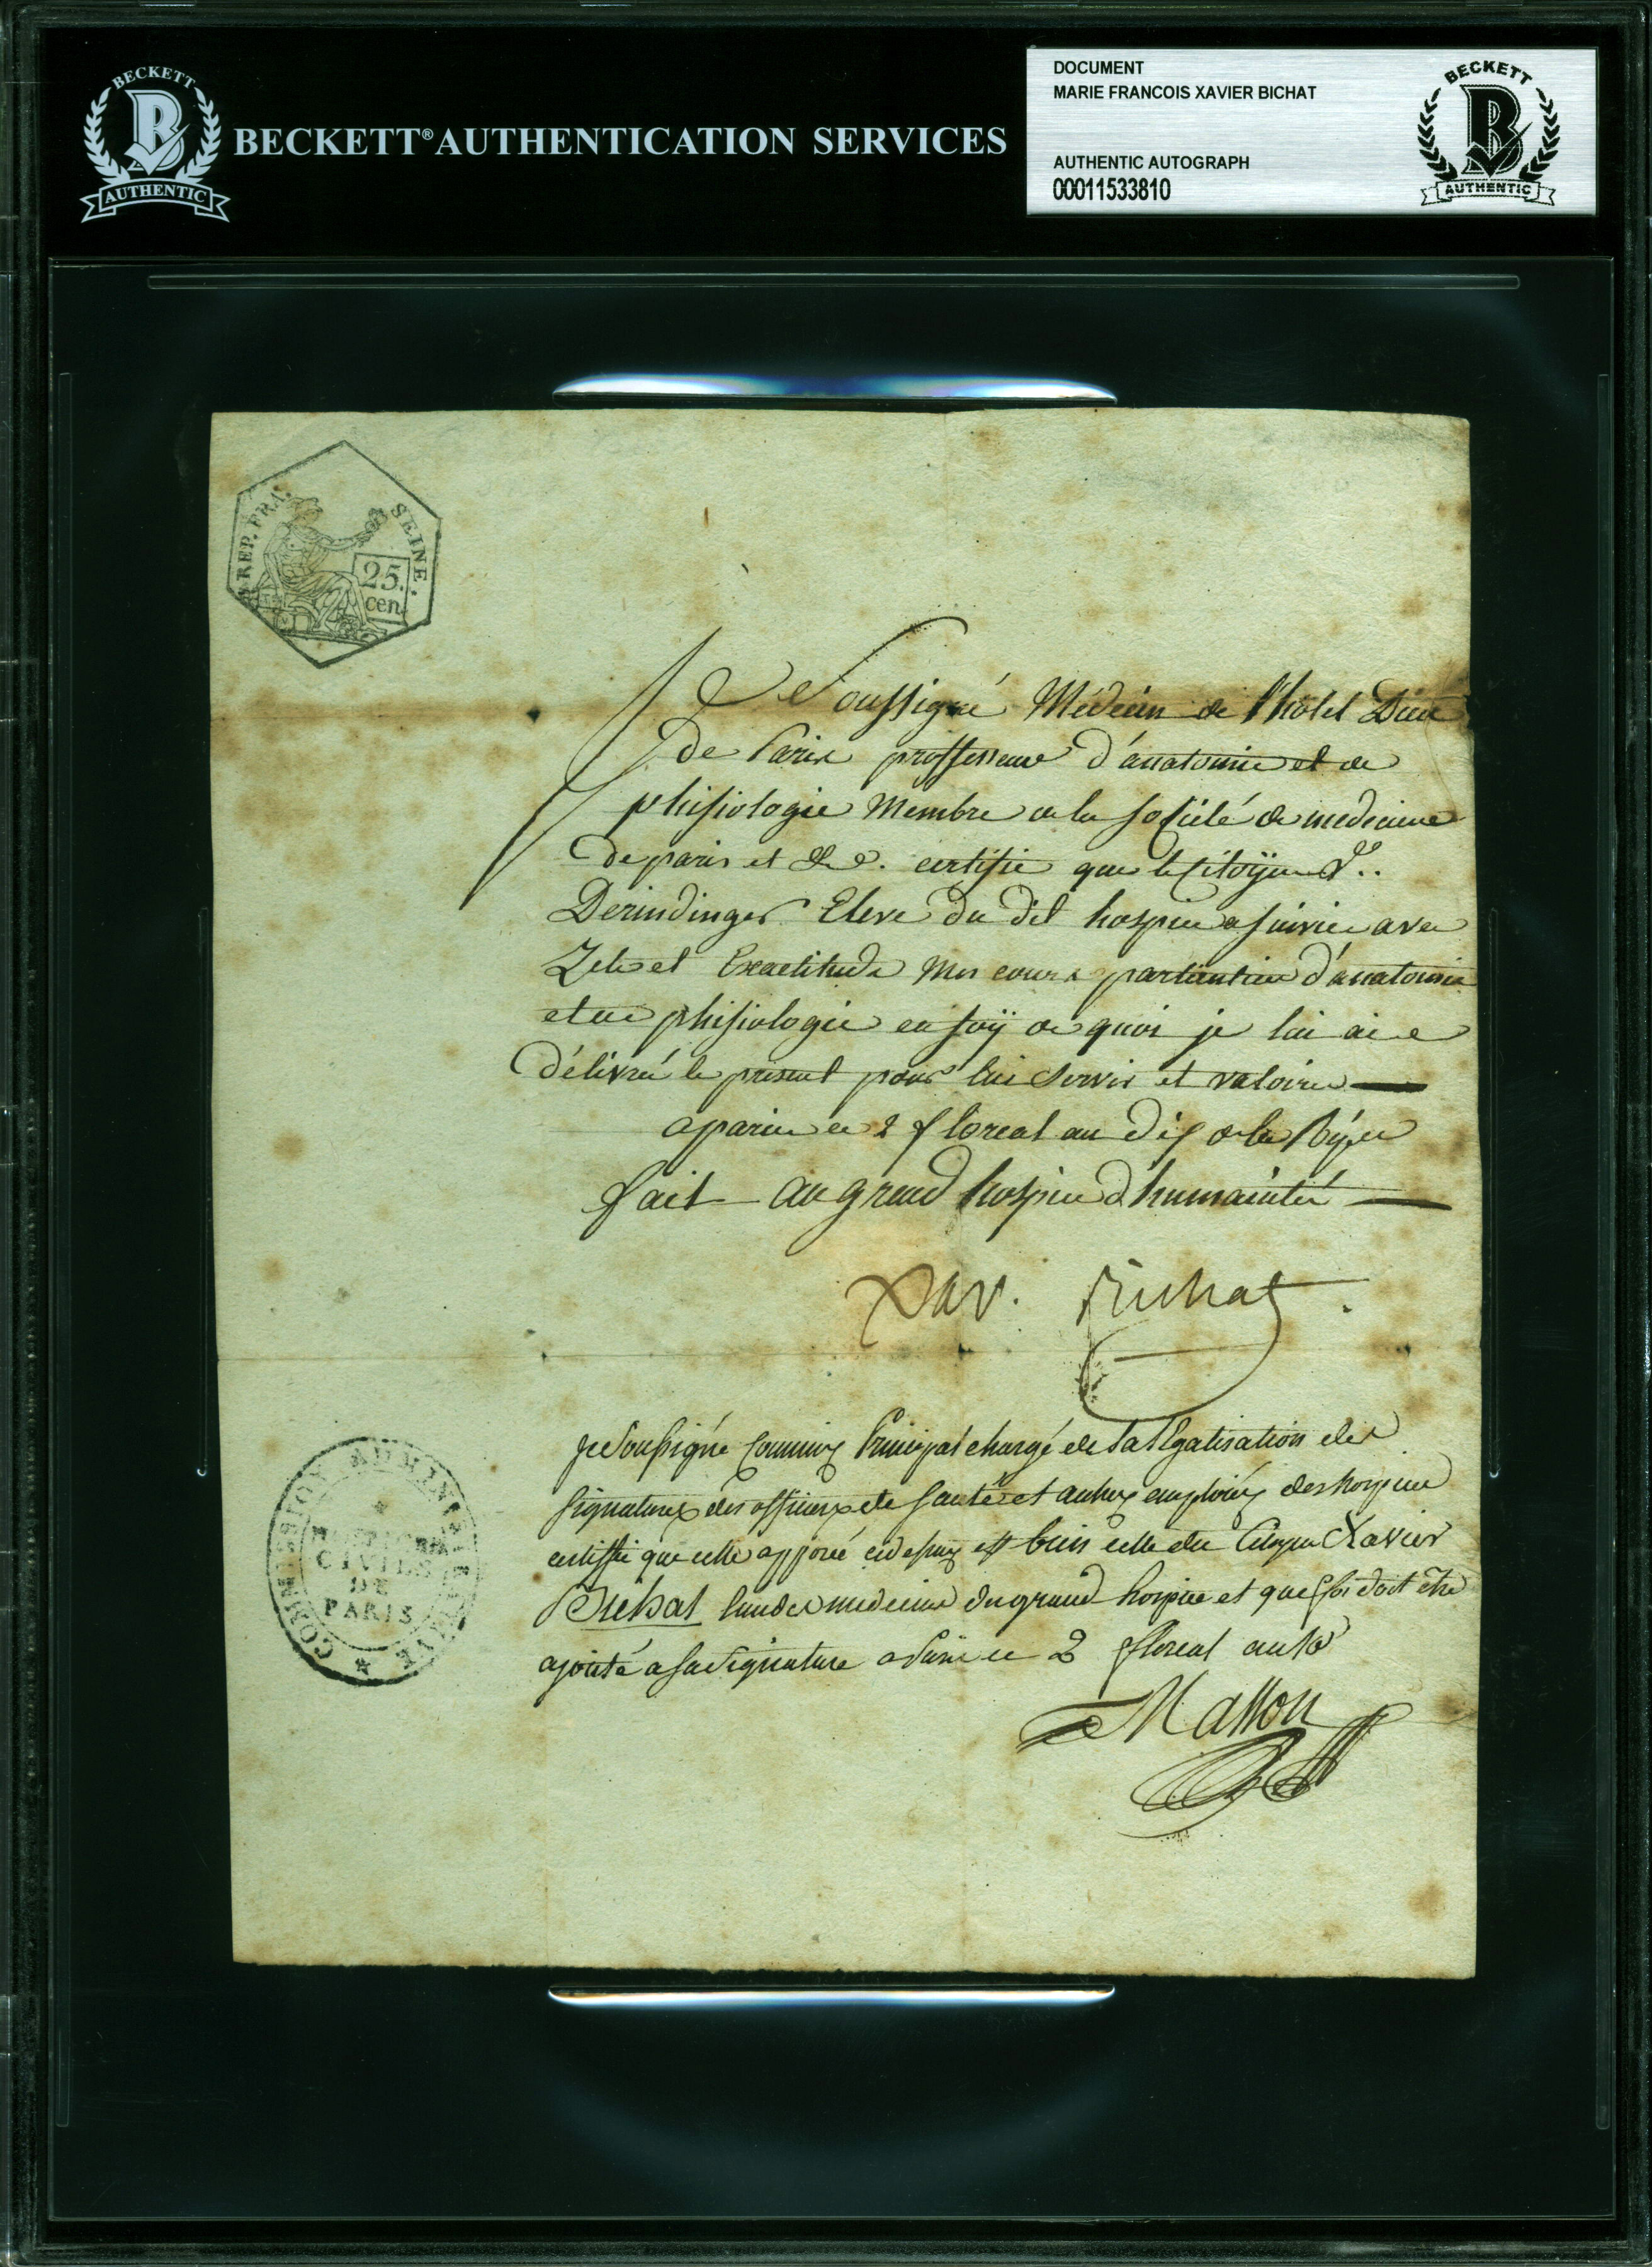 BECKETT
B
AUTHENTIC
BECKETT® AUTHENTICATION SERVICES
DOCUMENT
MARIE FRANCOIS XAVIER BICHAT
AUTHENTIC AUTOGRAPH
00011533810
BECKETT
B
AUTHENTIC
REP. FRA.
SEINE.
25.
cen.
Je Soussigné Médecin de l'hôtel Dieu
de Paris proffesseur d'anatomie et de
phisiologie Membre de la société de medecine
de paris et &c. certifie que le Citoÿen
Derindinger Eleve du dit hospice a suivie avec
Zele et Exactitude Mes cours particulier d'anatomie
et de phisiologie en foÿ de quoi je lui ai
délivré le present pour lui servir et valoir
a paris ce 2 floreal an dix de la Rép
fait au grand hospice d'humanité
Xav. Bichat.
Je Soussigné Commis Principal chargé de la légalisation des
signatures des officiers de santé et autres emploiés des hospices
certiffie que celle apposée cidessus est bien celle du Citoyen Xavier
Bichat l'un des medecins du grand hospice et que foi doit être
ajouté a sa signature a Paris ce 2 floreal an 10
Masson
COMMISSION ADMINISTRATIVE
HOSPICES
CIVILS
DE
PARIS